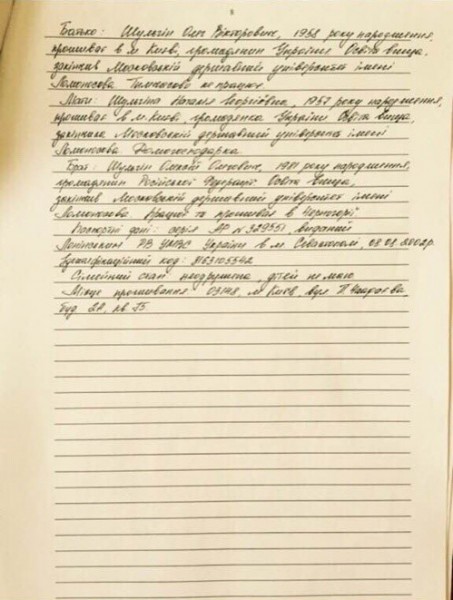 Батько: Шульгін Олег Вікторович, 1958 року народження,
проживає в м. Києві, громадянин України. Освіта вища,
закінчив Московський державний університет імені
Ломоносова. Тимчасово не працює.
Мати: Шульгіна Наталя Георгіївна, 1957 року народження,
проживає в м. Києві, громадянка України. Освіта вища,
закінчила Московський державний університет імені
Ломоносова. Домогосподарка
Брат: Шульгін Олегович, 1981 року народження,
громадянин Російської Федерації. Освіта вища,
закінчив Московський державний університет імені
Ломоносова. Працює та проживає в Чорногорії.
Паспортні дані: серія АР № 329351, виданий
Ленінським РВ УМВС України в м. Севастополі, 08.08.2002р.
Ідентифікаційний код: 3163105542
Сімейний стан: неодружена, дітей не маю.
Місце проживання: 03148, м. Київ, вул.
буд. 2А, кв. 75.